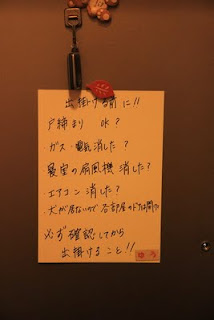 出掛ける前に!!
戸締まり ok?
・ガス・電気消した?
寝室の扇風機消した?
・エアコン消した?
・犬が居ないので各部屋のドアは開け
必ず確認してから
出掛けること!!